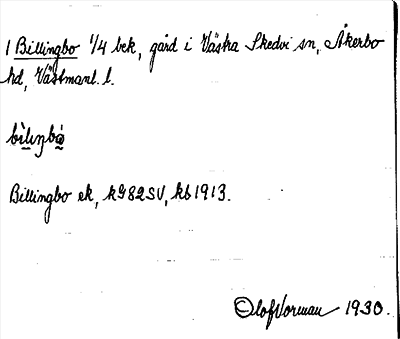 1 Billingbo 1/4 bek, gård i Västra Skedvi sn, Åkerbo
hd, Västmanl. l.
Billingbo ek, kG82SV, kb 1913.
Olof Vorman 1930.